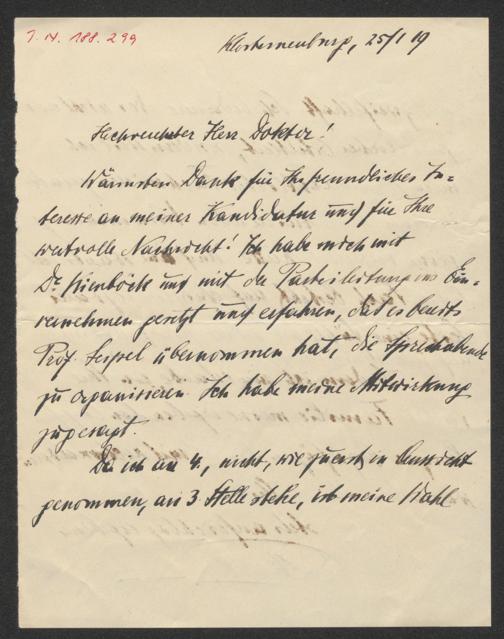 J. N. 188.299
Klosterneuburg, 25/I 19
Hochverehrter Herr Doktor!
Wärmsten Dank für Ihr freundliches In-
teresse an meiner Kandidatur und für Ihre
wertvolle Nachricht! Ich habe mich mit
Dr. Kienböck und mit der Parteileitung ins Ein-
vernehmen gesetzt und erfahren, daß es bereits
Prof. Seipel übernommen hat, die Sprechabende
zu organisieren. Ich habe meine Mitwirkung
zugesagt.
Da ich an 4., nicht, wie zuerst in Aussicht
genommen, an 3. Stelle stehe, ist meine Wahl